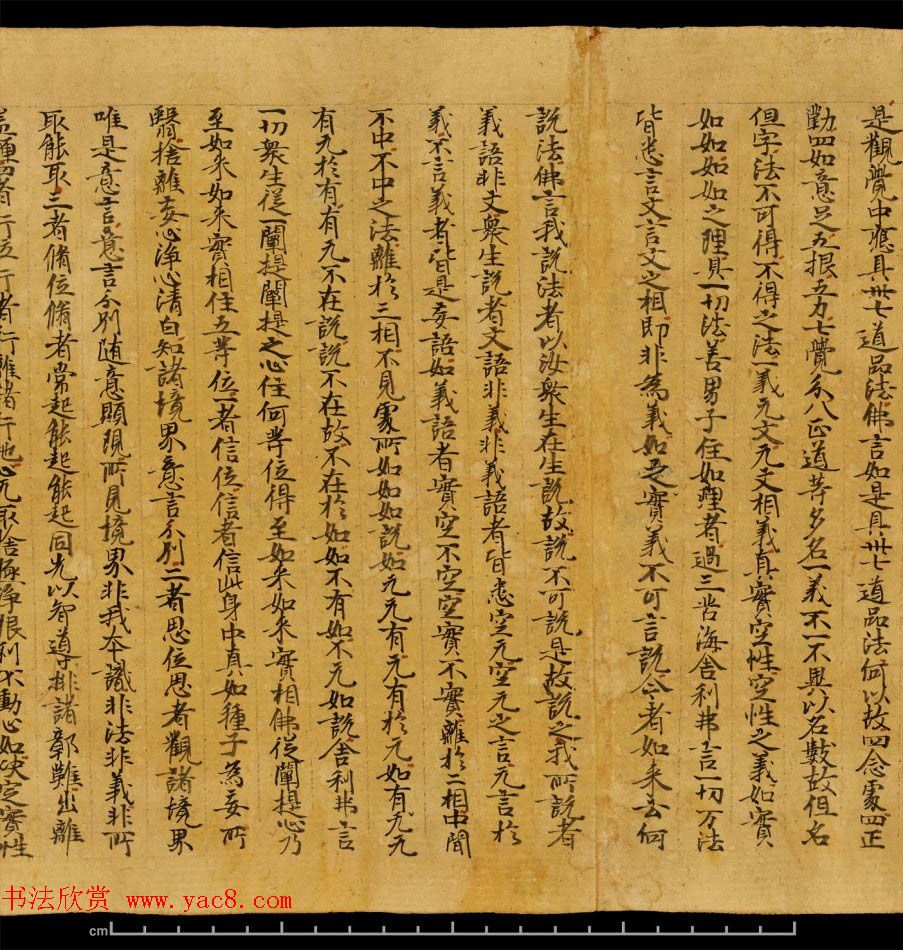 是觀覺中應具卅七道品法佛言如是具卅七道品法何以故四念處四正
勤四如意足五根五力七覺分八正道等多名一義不一不異以名數故但名
但字法不可得不得之法一義无文无文相義真實空性空性之義如實
如如如如之理具一切法善男子住如理者過三苦海舍利弗言一切万法
皆悉言文言文之相即非為義如之實義不可言說今者如来云何
說法佛言我說法者以汝衆生在生說故說不可說是故說之我所說者
義語非文衆生說者文語非義非義語者皆悉空无空无之言无言於
義不言義者皆是妄語如義語者實空不空空實不實離於二相中間
不中不中之法離於三相不見處所如如如說如无无有无有於无如有无无
有无於有有无不在說說不在故不在於如如不有如不无如說舍利弗言
一切衆生從一闡提闡提之心住何等位得至如来如来實相佛從闡提心乃
至如来如来實相住五等位一者信位信者信此身中真如種子為妄所
翳捨離妄心淨心清白知諸境界意言分別二者思位思者觀諸境界
唯是意言意言分別随意顯現所見境界非我本識非法非義非所
取能取三者脩位脩者常起能起能起同先以智導排諸鄣難出離
蓋纏四者行位行者行離諸行地心无取捨極淨根利不動心如決定實性
书法欣赏 www.yac8.com
cm